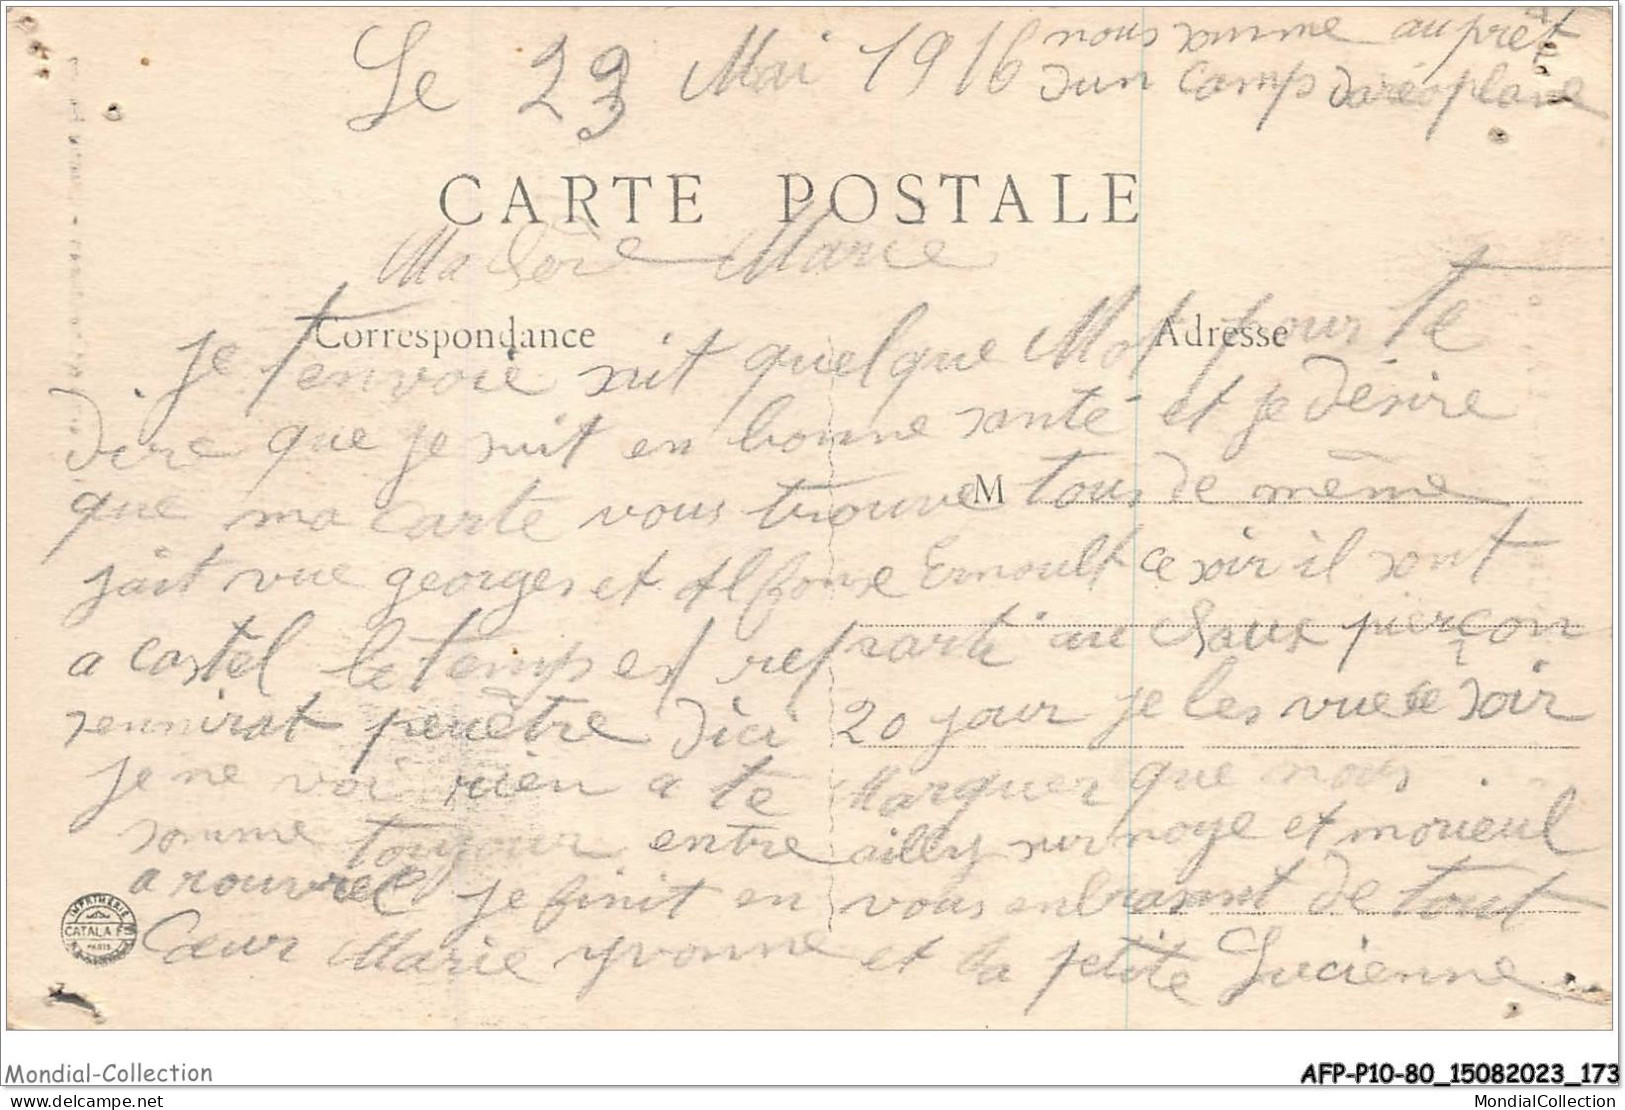 Le 23 Mai 1916
nous somme au pret
dun camp daréoplane
CARTE POSTALE
Ma Marie
Correspondance
Adresse
je tenvoie suit quelque Mot pour te
dire que je suit en bonne santé et je désire
que ma carte vous trouve tous de même
M
jait vue georges et Alfonse Ernoult ce soir il sont
a castel le temps est reparti au pierçon
sennirat peuêtre dici 20 jour je les vue ce soir
je ne voi rien a te Marquer que nous
somme toujour entre ailly sur noye et moreuil
a rouvrel je finit en vous enbrasant de tout
Cœur Marie yvonne et la petite Lucienne
IMPRIMERIE
CATALA Fs
PARIS
Mondial-Collection
AFP-P10-80_15082023_173
delcampe.net
MondialCollection